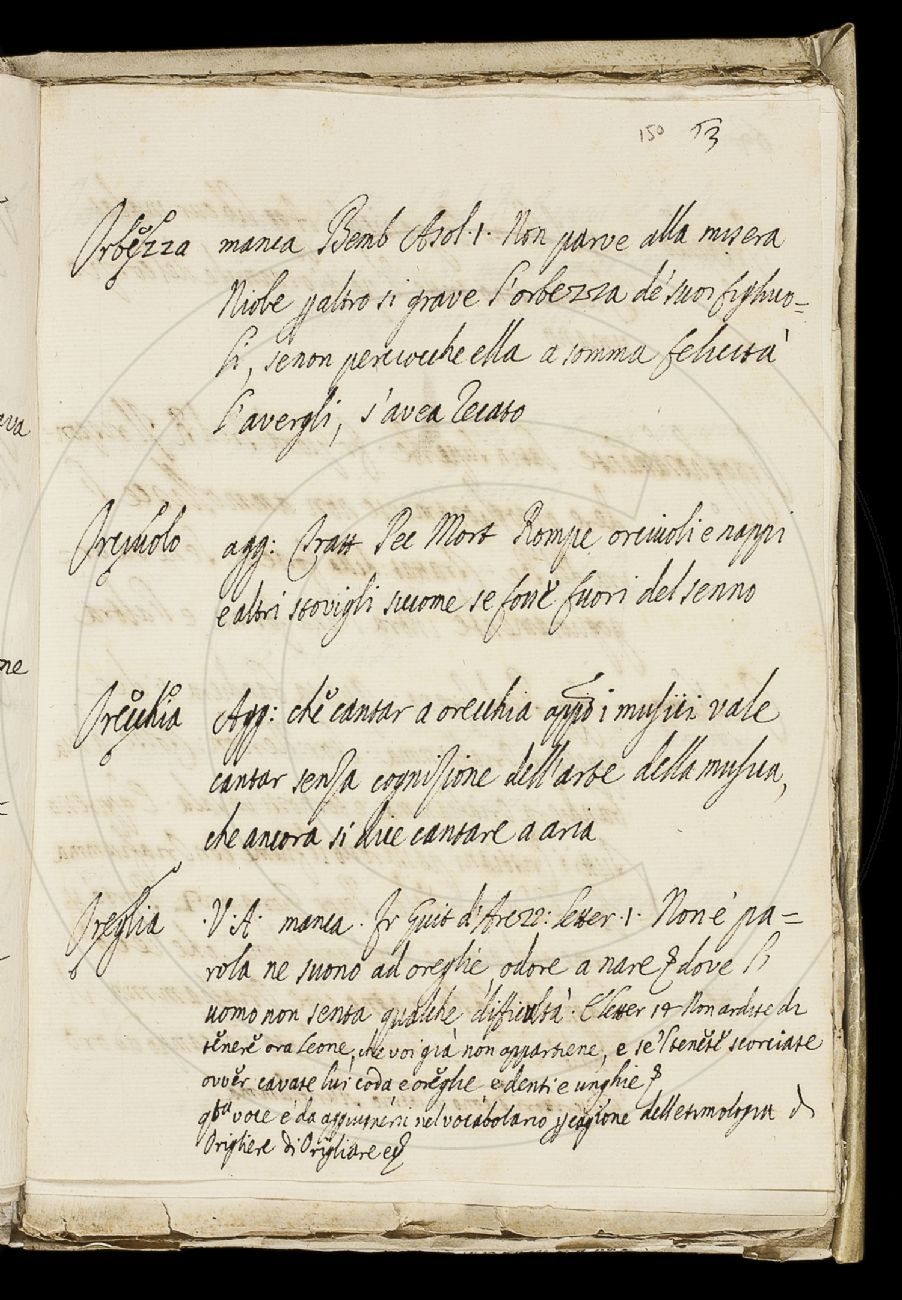 150 53
Orbezza manca Bemb Asol. 1. Non parve alla misera
Niobe p altro sì grave l'orbezza de' suoi figliuo=
li, se non perciocche ella a somma felicità
l'avergli, s'avea recato
Orciuolo agg: Tratt Pec Mort Rompe orciuoli e nappi
e altri stovigli siccome se fosse fuori del senno
Orecchia Agg: che cantar a orecchia appo i musici vale
cantar senza cognizione dell'arte della musica,
che ancora si dice cantare a aria
Oreglia .V.A. manca. Fr Guit d'Arezz: letter. 1. Non è pa=
rola ne suono ad oreglie, odore a nare dove l'
uomo non senta qualche difficultà. E letter 14 Non ardite di
tenere ora Leone, che voi già non appartiene, e se 'l tenete scorciate
over cavate lui coda e oreglie e denti e unghie
qta voce è da aggiugnersi nel vocabolario p cagione dell'etimologia di
Origliere di Origliare ec
ava
ne